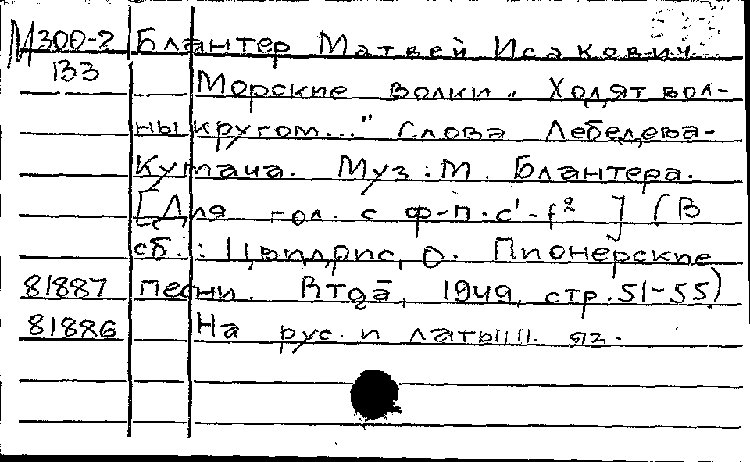 М300-2 Блантер Матвей Исакович.
133
Морские волки. Ходят вол-
ны кругом..." Слова Лебедева-
Кумача. Муз: М. Блантера.
[Для гол. с ф-п. c¹-f² ] (В
сб.: О. Пионерские
81887 песни. Rīgā, 1949, стр. 51-55)
81886 На рус. и латыш. яз.